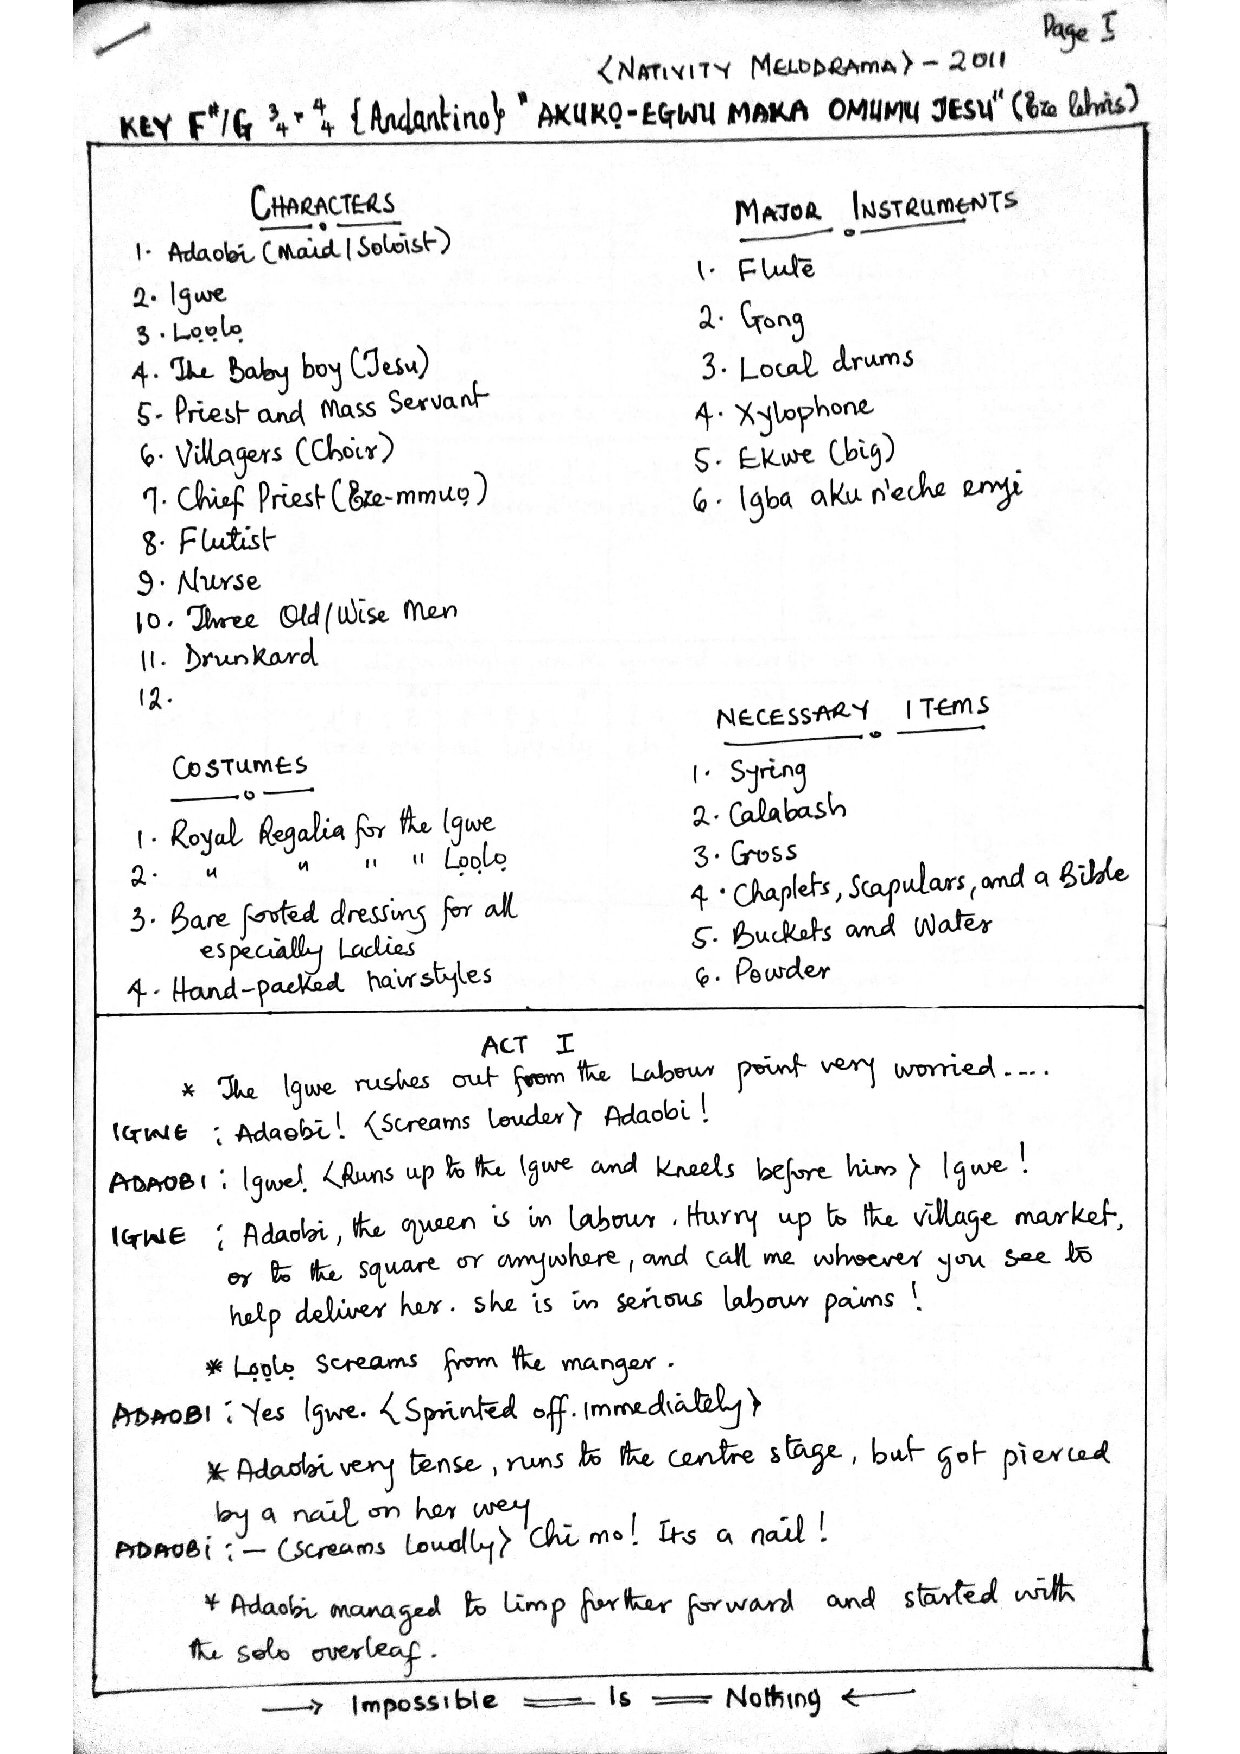 Page I
<NATIVITY MELODRAMA> - 2011
KEY F#/G 3/4 4/4 {Andantino} "AKUKỌ-EGWU MAKA OMUMU JESU" (Eze
CHARACTERS
1. Adaobi (Maid / Soloist)
2. Igwe
3. Lọọlọ
4. The Baby boy (Jesu)
5. Priest and Mass Servant
6. Villagers (Choir)
7. Chief Priest (Eze-mmuọ)
8. Flutist
9. Nurse
10. Three Old/Wise Men
11. Drunkard
12.
MAJOR INSTRUMENTS
1. Flute
2. Gong
3. Local drums
4. Xylophone
5. Ekwe (big)
6. Igba aku n'eche enyi
COSTUMES
1. Royal Regalia for the Igwe
2. " " " " Lọọlọ
3. Bare footed dressing for all
especially Ladies
4. Hand-packed hairstyles
NECESSARY ITEMS
1. Syring
2. Calabash
3. Cross
4. Chaplets, Scapulars, and a Bible
5. Buckets and Water
6. Powder
ACT I
* The Igwe rushes out from the Labour point very worried....
IGWE : Adaobi! <Screams louder> Adaobi!
ADAOBI : Igwe! <Runs up to the Igwe and kneels before him> Igwe!
IGWE : Adaobi, the queen is in labour. Hurry up to the village market,
or to the square or anywhere, and call me whoever you see to
help deliver her. She is in serious labour pains!
* Lọọlọ screams from the manger.
ADAOBI : Yes Igwe. <Sprinted off immediately>
* Adaobi very tense, runs to the centre stage, but got pierced
by a nail on her wey
ADAOBI : - (Screams loudly> Chi mo! Its a nail!
* Adaobi managed to limp further forward and started with
the solo overleaf.
→ Impossible = Is = Nothing ←